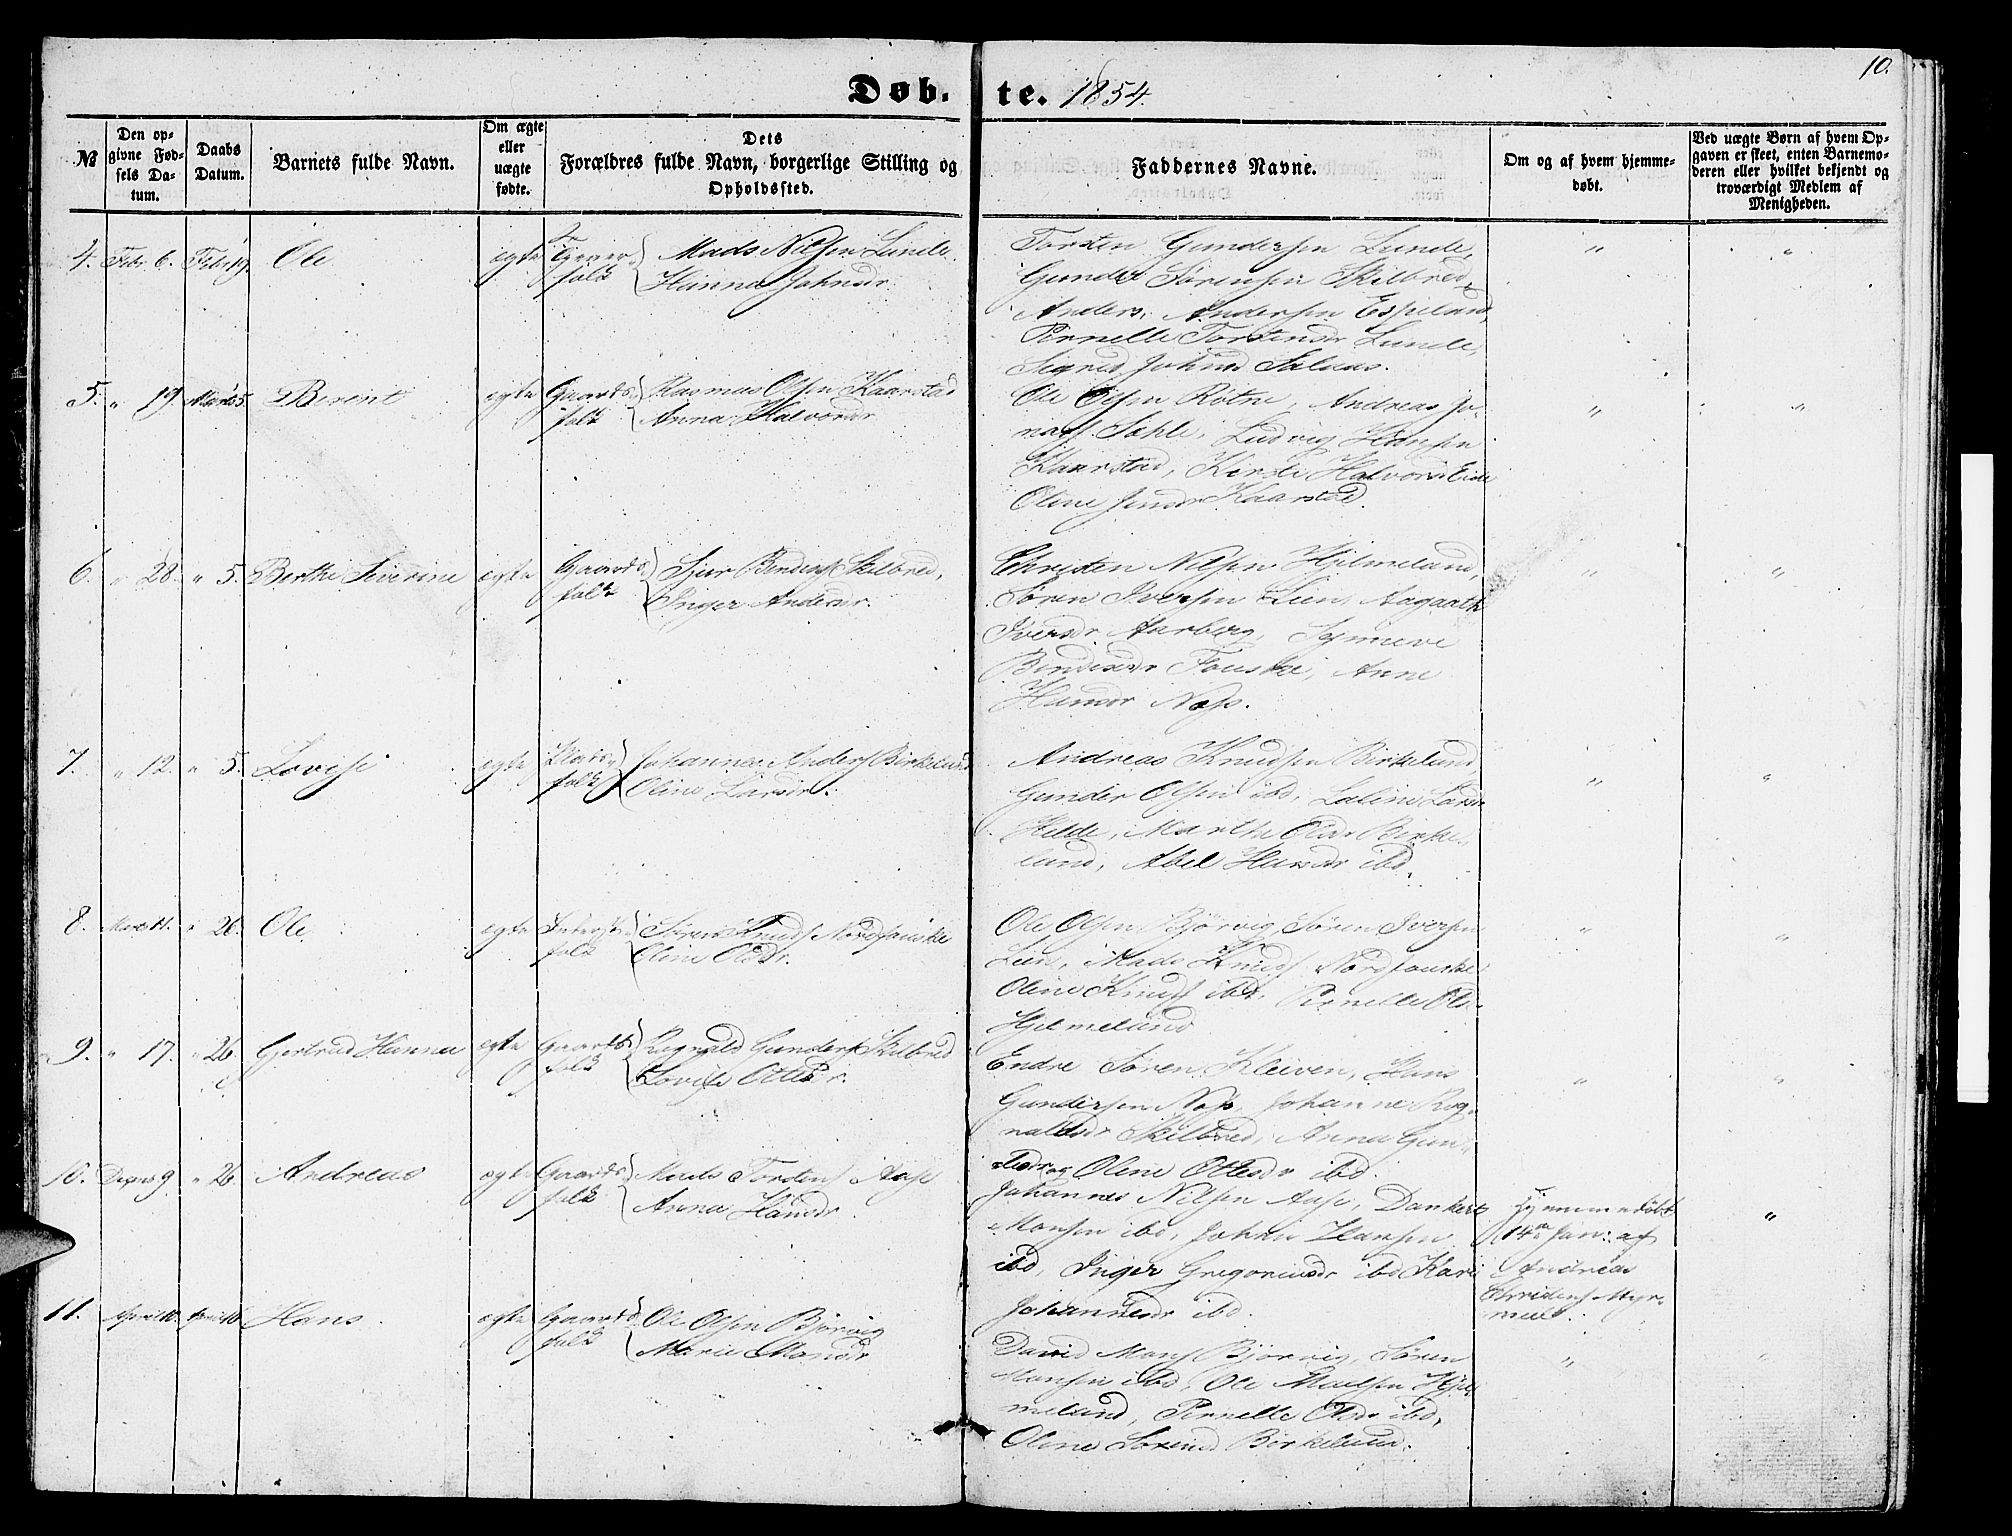 10.
Døb. te. 1854
№
Den op-
givne Fød-
sels Da-
tum.
Daabs
Datum.
Barnets fulde Navn.
Om ægte
eller
uægte
fødte.
Dets
Forældres fulde Navn, borgerlige Stilling og
Opholdssted.
Faddernes Navne.
Om og af hvem hjemme-
døbt.
Ved uægte Børn af hvem Op-
gaven er skeet, enten Barnemo-
deren eller hvilket bekjendt og
troværdigt Medlem af
Menigheden.
4. Febr. 6. Febr. 19. Ole egte
folk
Mads Nilsen Lunde.
Hanna Johnsdr
Torsten Gundersen Lunde,
Gunder Sørensen Skilbred,
Anders Andersen Espeland,
Pernelle Torstensdr Lunde,
Sigrid Johnsd
" "
5. " 19. Marts 5. Berent egte Gaards
folk
Rasmus Olsen Kaarstad
Anna Halvorsdr
Ole Olsen Rotne, Andreas Jo-
nass. Sæhle, Ludvig Hansen
Kaarstad, Kirsti Halvorsd Eide
Oline Jensdr Kaarstad.
" "
6. " 28. " 5. Berthe Severine egte Gaards
folk
Sjur Bendixs. Skilbred,
Inger Andersdr.
Christen Nilsen Hjelmeland,
Søren Iversen Lien, Aagaath
Iversdr Aarberg, Synneve
Bendixsdr Fauske, Anne
Hansdr Næss.
" "
7. " 12. " 5. Lovise egte Plads
folk
Johannes Anders. Birkeland
Oline Larsdr.
Andreas Knudsen Birkeland,
Gunder Olsen ibd, Larsdr
Helde, Marthe Olsdr Birke-
land, Abel Hansdr ibd.
" "
8. Marts 14. " 26. Ole egte Inderst
folk
Søren Knuds. Nordfauske
Oline Olsdr.
Ole Olsen Bjørvig, Søren Iversen
Lien, Mads Knuds. Nordfauske
Oline Knuds. ibd, Pernelle Ols-
Hjelmeland
" "
9. " 17. " 26. Gjertrud Hanna egte Gaards
folk
Ragnald Gunders. Skilbred
Lovise Ottesdr.
Endre Søren. Kleiven, Hans
Gundersen Næss, Johanne Rag-
naldsdr Skilbred, Anna Gun-
dersdr og Oline Ottesdr ibd.
" "
10. 9 " 26. Andreas egte Gaards
folk
Mads Torstens. Aase
Anna Hansdr.
Johannes Nilsen Aase, Dankert
Monsen ibd, Johan Hansen
ibd, Inger Gregoriusdr ibd Kari
Johannesdr ibd.
Hjemmedøbt
14de Jan: af
Andreas
Christens. Myr-
mel.
"
11. April 10. April 16 Hans egte Gaards
folk
Ole Olsen Bjørvig
Marie Monsdr
David Mons. Bjørvig, Søren
Monsen ibd, Ole Madsen Hjel-
meland, Pernelle Olsdr ibd,
Oline Sørensd Birkeland.
" "